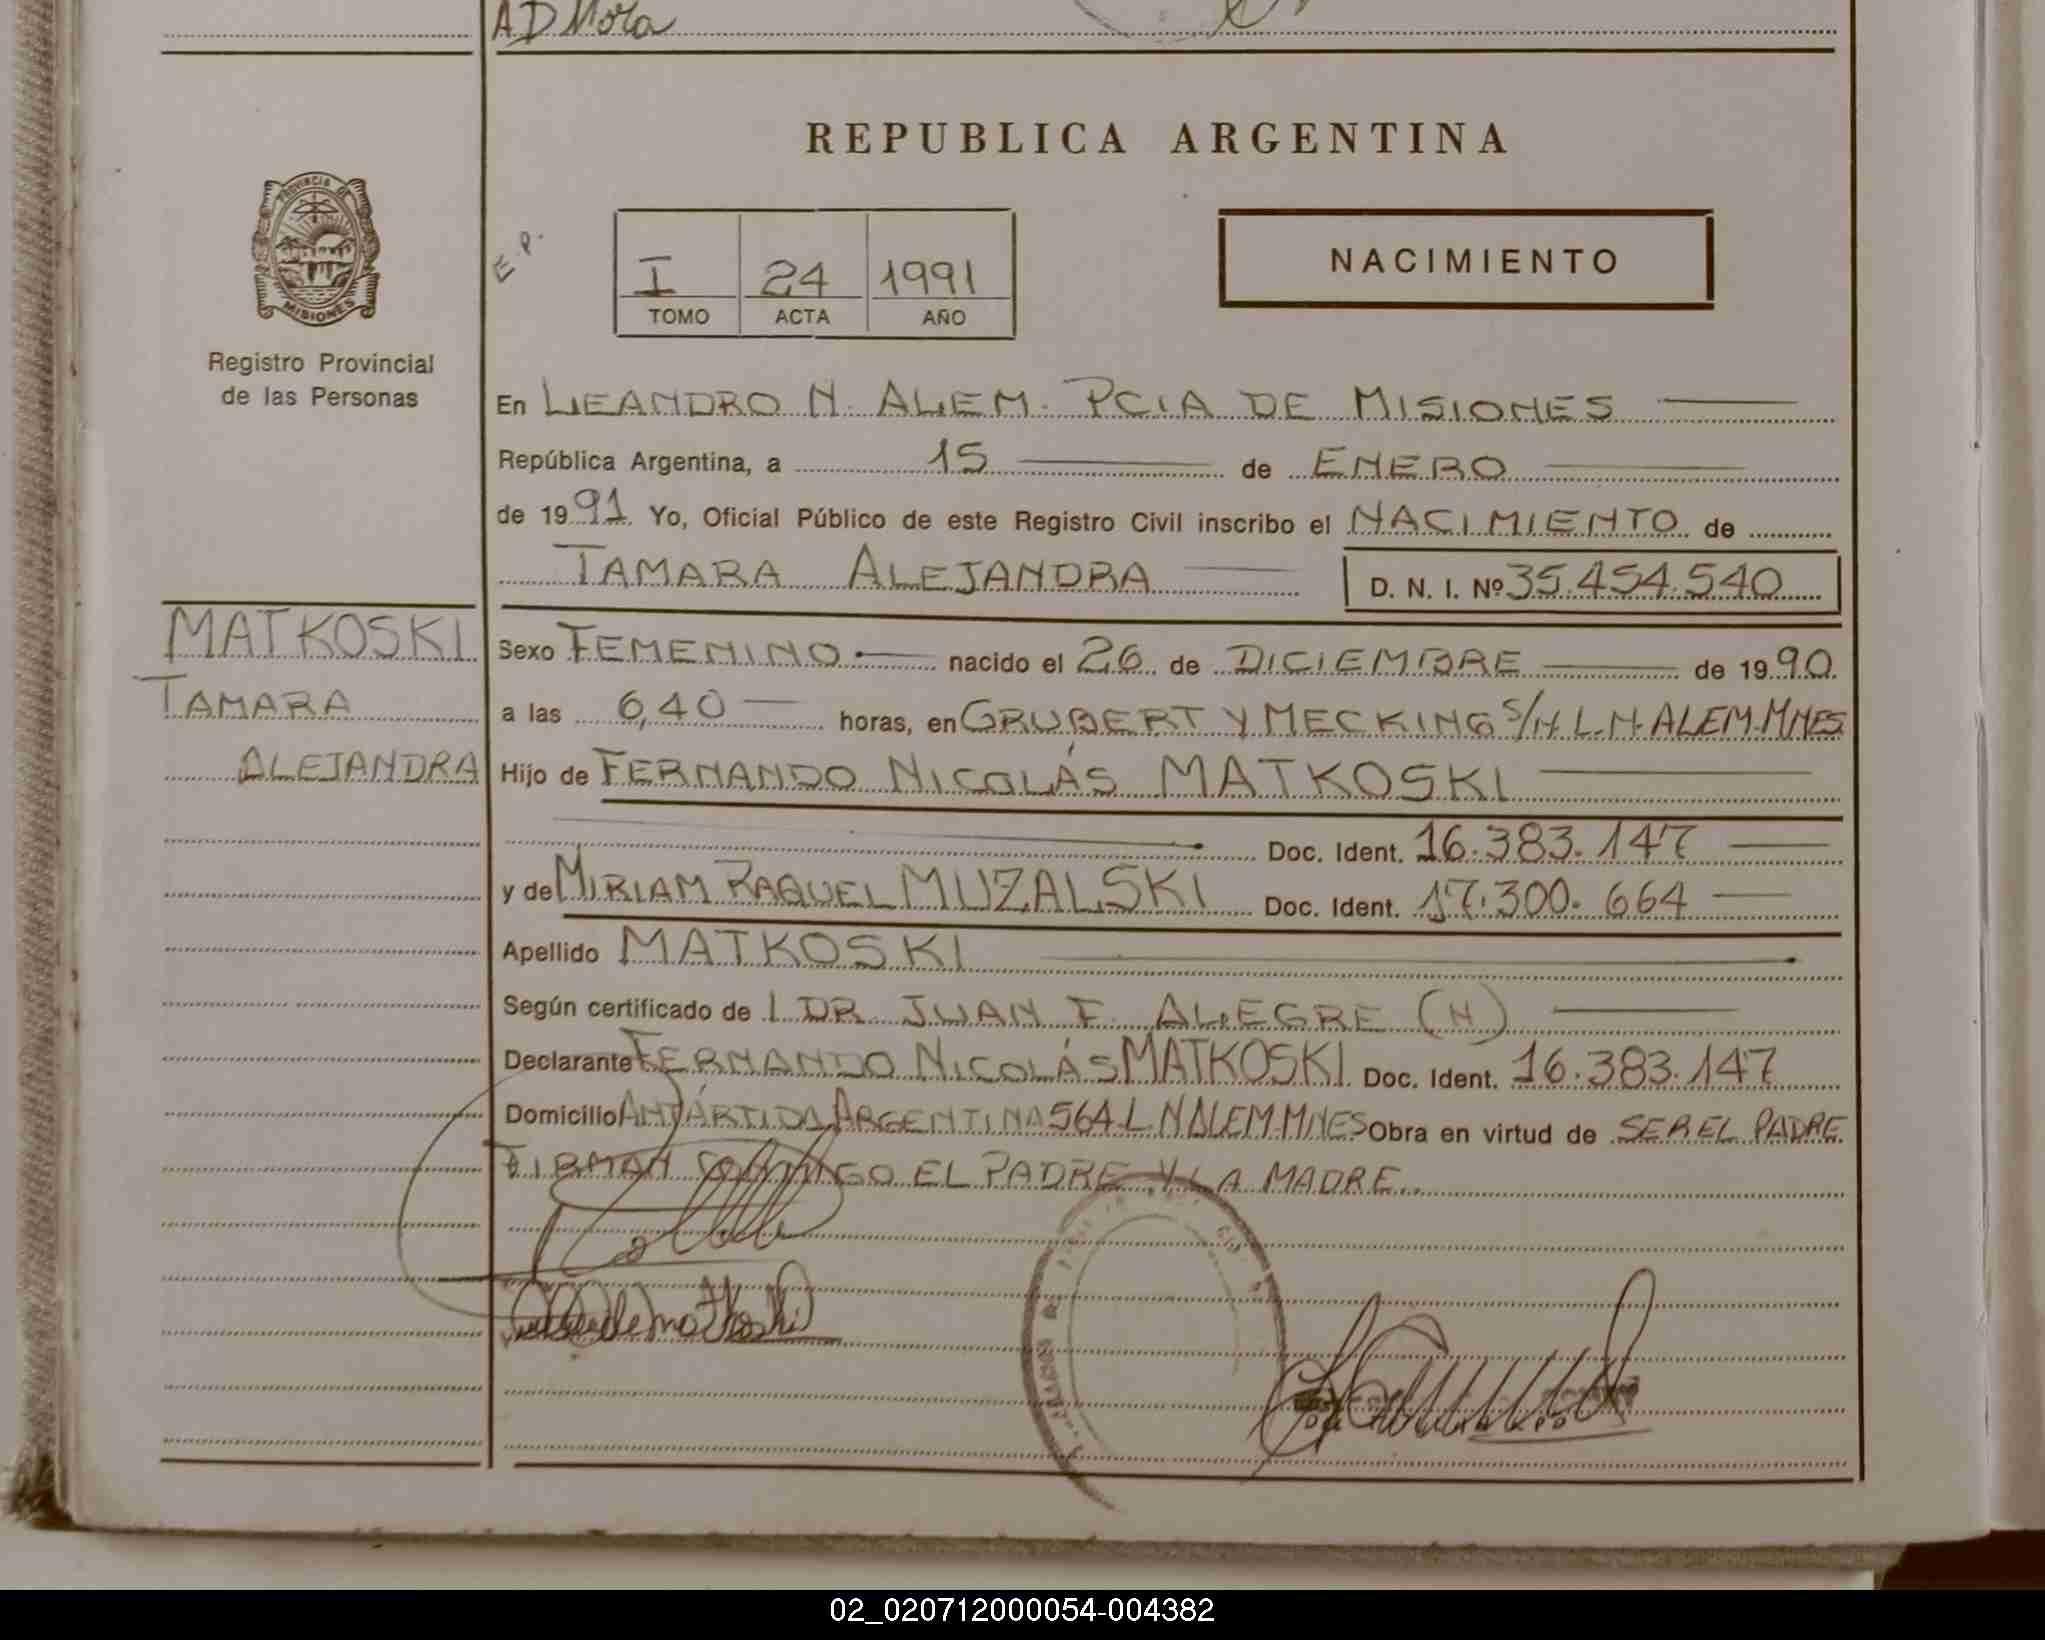 AD Mora
REPUBLICA ARGENTINA
PROVINCIA DE
MISIONES
Registro Provincial
de las Personas
E.P.
I 24 1991
TOMO ACTA AÑO
NACIMIENTO
En LEANDRO N. ALEM. PCIA DE MISIONES
República Argentina, a 15 de ENERO
de 1991 Yo, Oficial Público de este Registro Civil inscribo el NACIMIENTO de
TAMARA ALEJANDRA D. N. I. Nº 35.454.540
MATKOSKI
TAMARA
ALEJANDRA
Sexo FEMENINO nacido el 26 de DICIEMBRE de 1990
a las 6,40 horas, en GRUBERT Y MECKING S/N L.N. ALEM. MNES
Hijo de FERNANDO NICOLÁS MATKOSKI
Doc. Ident. 16.383.147
y de MIRIAM RAQUEL MUZALSKI Doc. Ident. 17.300.664
Apellido MATKOSKI
Según certificado de L DR. JUAN F. ALEGRE (N)
Declarante FERNANDO NICOLÁS MATKOSKI Doc. Ident. 16.383.147
Domicilio ANTÁRTIDA ARGENTINA 564 L N ALEM. MNES Obra en virtud de SER EL PADRE
FIRMAN CONMIGO EL PADRE Y LA MADRE.
de Matkoski
02_020712000054-004382